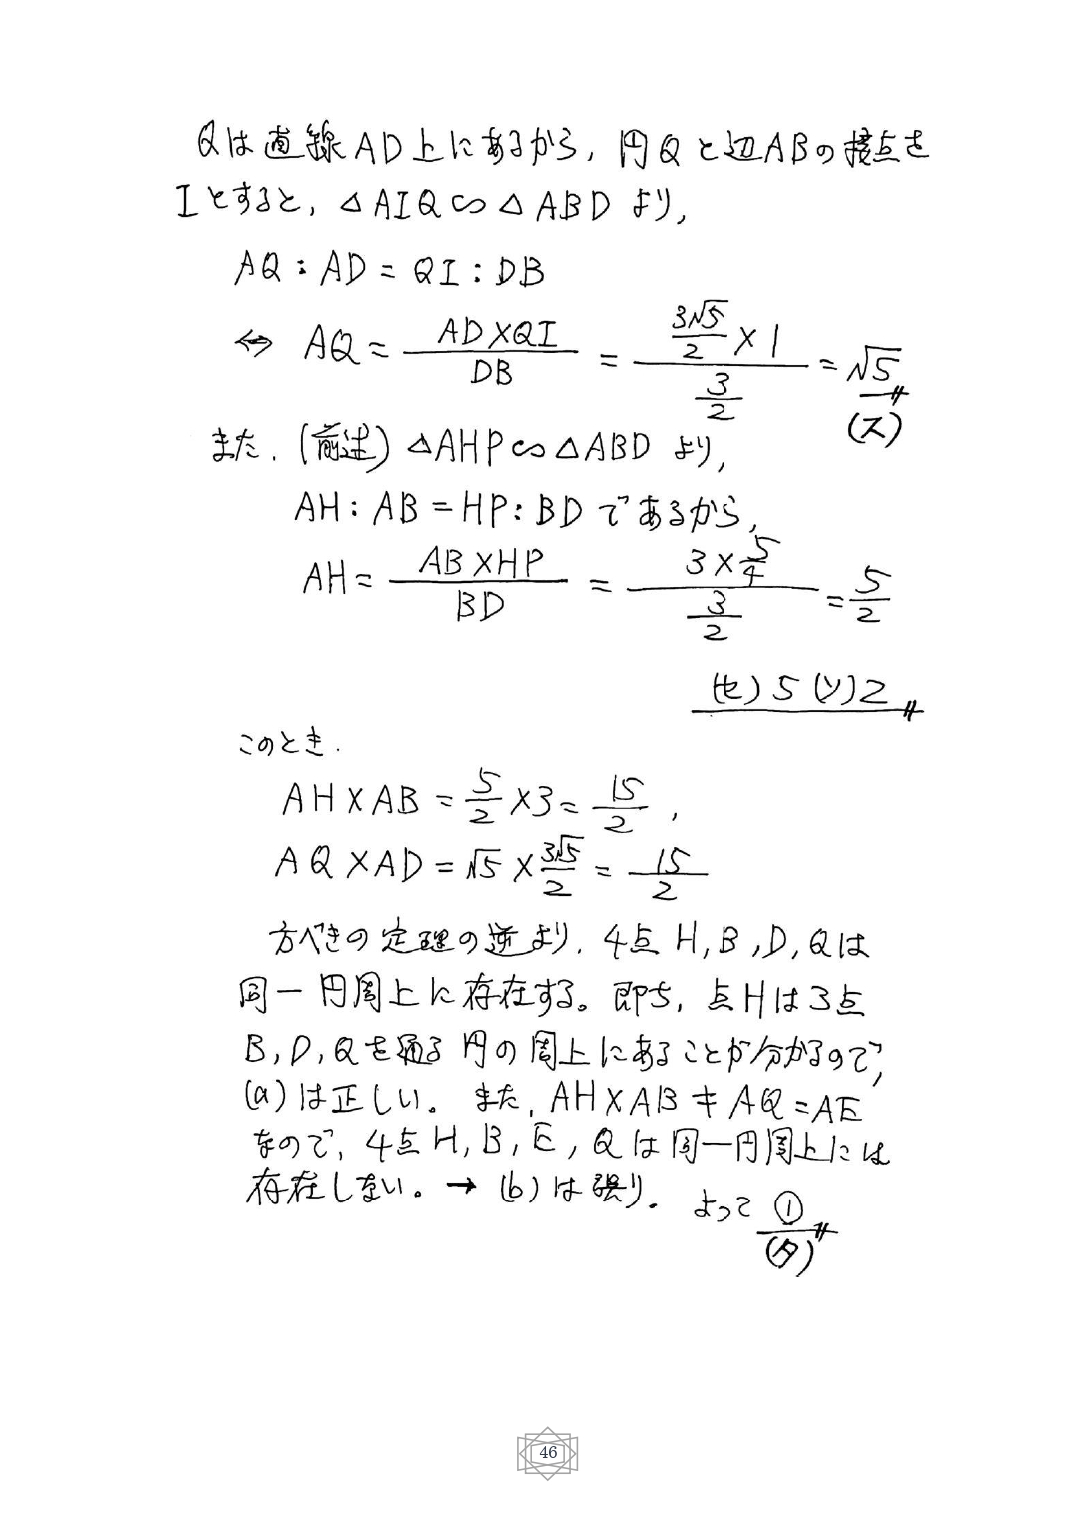 Qは直線AD上にあるから, 円Qと辺ABの接点を
Iとすると, △AIQ∽△ABD より,
AQ:AD=QI:DB
⇔ AQ = AD×QI / DB = (3√5/2 × 1) / (3/2) = √5
(ス)
また, (前述) △AHP∽△ABD より,
AH:AB=HP:BD であるから,
AH = AB×HP / BD = (3×5/4) / (3/2) = 5/2
(セ)5 (ソ)2
このとき.
AH×AB = 5/2 ×3 = 15/2,
AQ×AD = √5 × 3√5/2 = 15/2
方べきの定理の逆より, 4点 H,B,D,Qは
同一円周上に存在する。即ち, 点Hは3点
B,D,Qを通る円の周上にあることが分かるので,
(a)は正しい。 また, AH×AB≠AQ=AE
なので, 4点H,B,E,Qは同一円周上には
存在しない。→ (b)は誤り. よって ①
(タ)
46